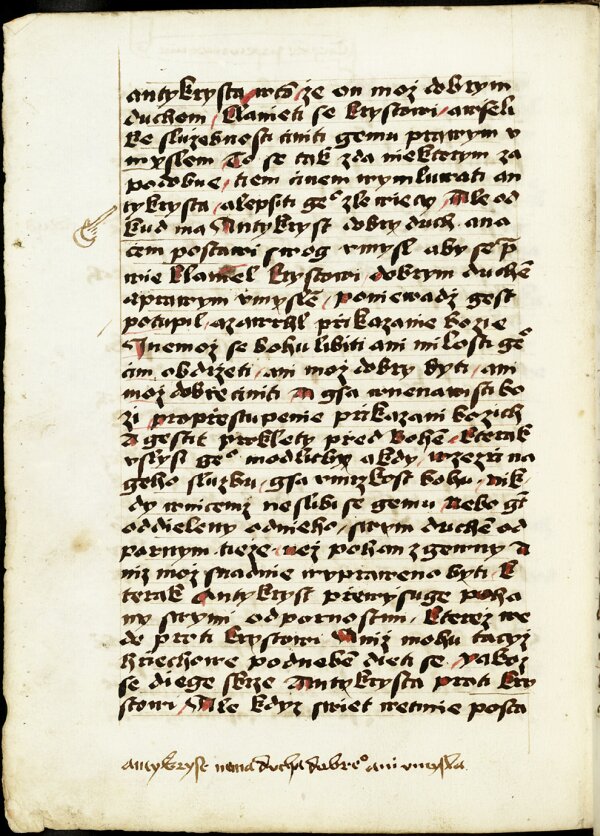 antykrysta, wtō, że on moż dobrym
duchem, klanieti se krystowi, awsseli
ke służebnosti cziniti gemu prawym v
myslem To se tak zda niekterym za
podobne, tiem cinem wymluwati an
tykrysta, alepsiti geº zle wieczy Ale od
kud ma Antykryst dobry duch. ana
czem postawi swog vmysl aby se p
wie klaniel krystowi, dobrym duchē
aprawym vmyslē, poniewadż gest
potupil, azawrhl prikazanie bozie
Anemoż se bohu libiti ani milosti geº
tim obdrżeti, ani moż dobry byti, ani
moż dobrze ciniti A gsa wnenawisti bo
zi, proprestupenie prikazani bozich
A gestit proklety przed bohē, kterak
vslysi geº modlitby akdy, wzezrzi na
geho sluzbu, gsa vmrzkost bohu, nik
dy wnicemż neslibi se gemu, nebo gt
oddieleny odnieho, swym duchē od
pornym, tieże nez pohan zgewny A
niz moż snadnie wypraweno byti, k
terak Antykryst przewysuge poha
ny swymi odpornostmi, kterez we
de proti krystowi, Aniz mohu taczyz
hriechowe podnebē dieti se, yakoz
se diege skrze Antykrysta proti kry
stowi, Ale kdyz swiet wetmie posta
antykryst nema ducha dobreº ani vmysla